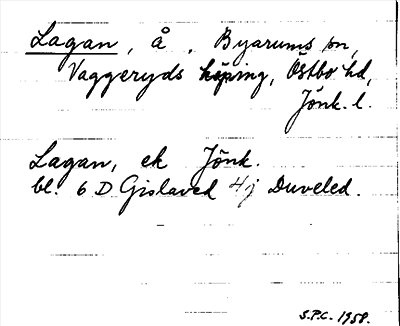 Lagan, å. Byarums sn,
Vaggeryds köping, Östbo hd,
Jönk. l.
Lagan, ek Jönk.
bl. 6 D Gislaved 4j Duveled.
S.P.C. 1958.